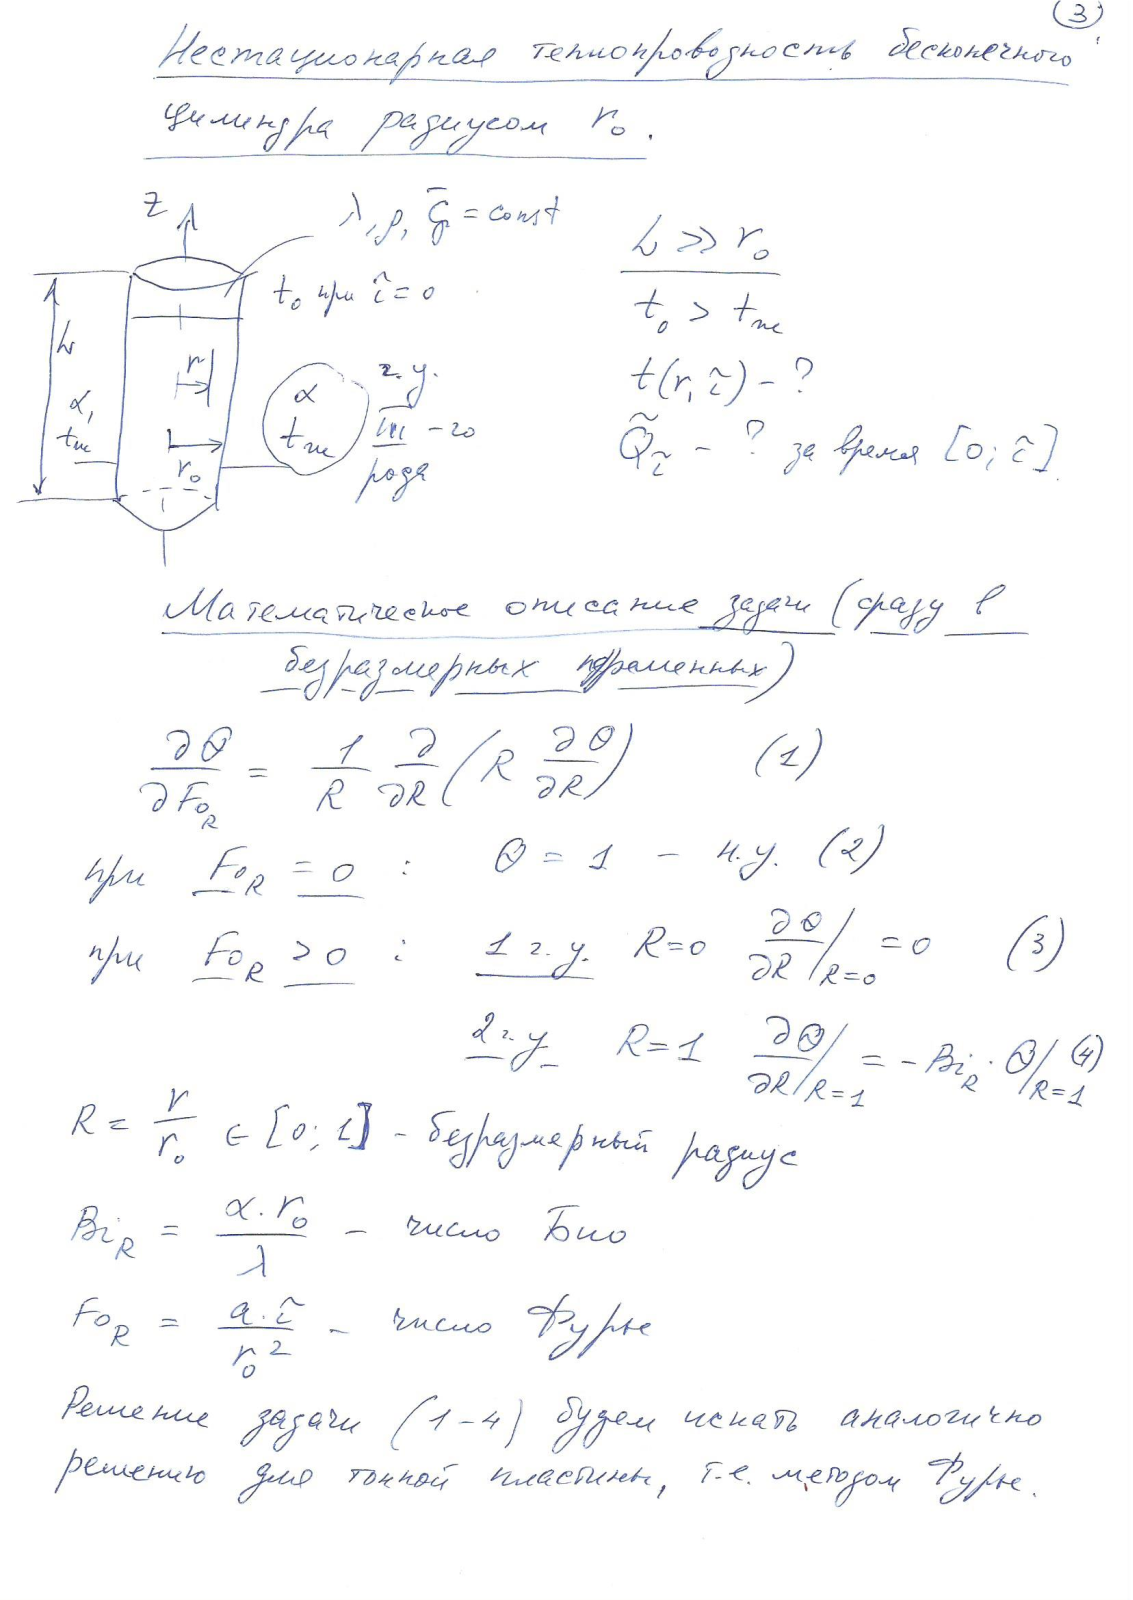 3
Нестационарная теплопроводность бесконечного
цилиндра радиусом r₀.
Z
λ, ρ, C̄p = const
L ≫ r₀
t₀ при τ = 0
t₀ > tж
L
r
α
tж
г.у.
III - го
рода
t(r, τ) - ?
α,
tж
r₀
Q̃τ - ? за время [0; τ].
Математическое описание задачи (сразу в
безразмерных переменных)
∂Θ/∂Fo_R = 1/R ∂/∂R (R ∂Θ/∂R) (1)
при Fo_R = 0 : Θ = 1 - н.у. (2)
при Fo_R > 0 : 1 г.у. R=0 ∂Θ/∂R/R=0 = 0 (3)
2 г.у. R=1 ∂Θ/∂R/R=1 = - Bi_R · Θ/R=1 (4)
R = r/r₀ ∈ [0; 1] - безразмерный радиус
Bi_R = α·r₀/λ - число Био
Fo_R = a·τ/r₀² - число Фурье
Решение задачи (1-4) будем искать аналогично
решению для тонкой пластины, т.е. методом Фурье.